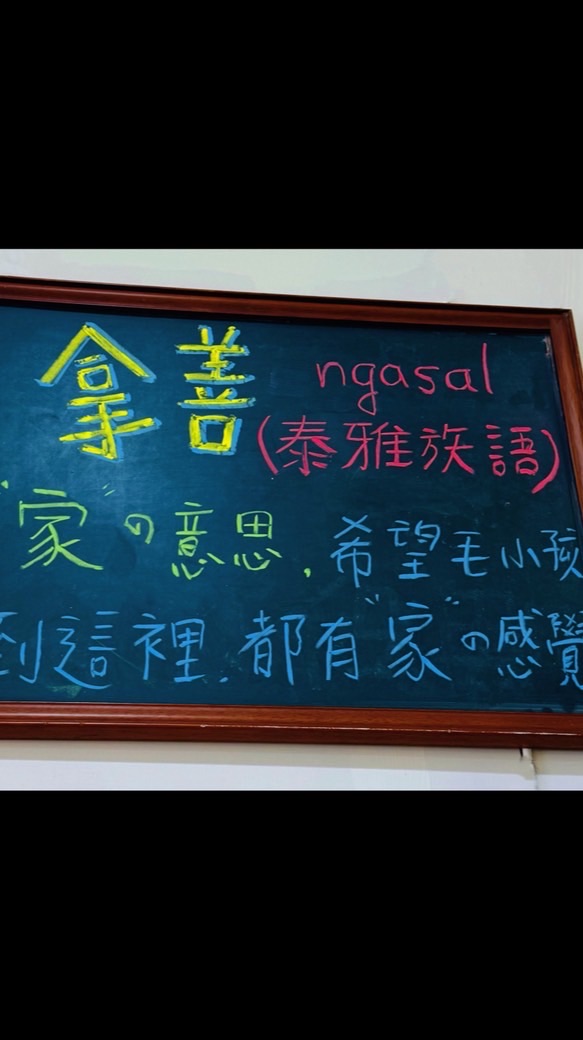 拿善 ngasal
(泰雅族語)
"家"の意思，希望毛小孩
到這裡，都有"家"の感覺